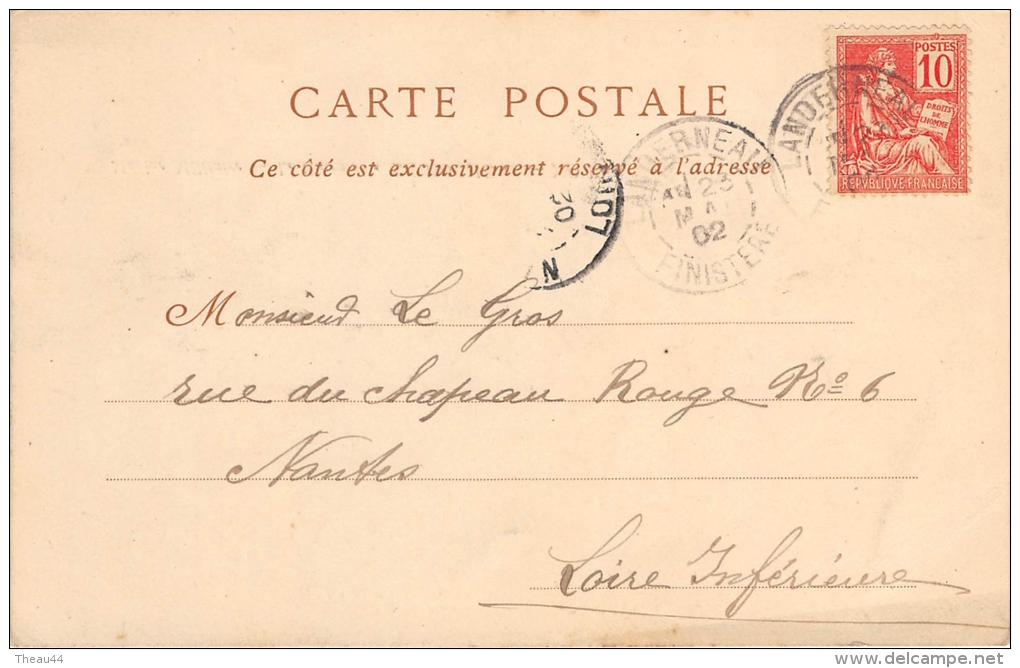 POSTES
10
DROITS
DE
L'HOMME
REPVBLIQVE FRANÇAISE
CARTE POSTALE
Ce côté est exclusivement réservé à l'adresse
LANDERNEAU
23
MAI
02
FINISTERE
LANDERNEAU
LOIR
N
Monsieur Le Gros
rue du Chapeau Rouge No 6
Nantes
Loire Inférieure
Theau44
www.delcampe.net